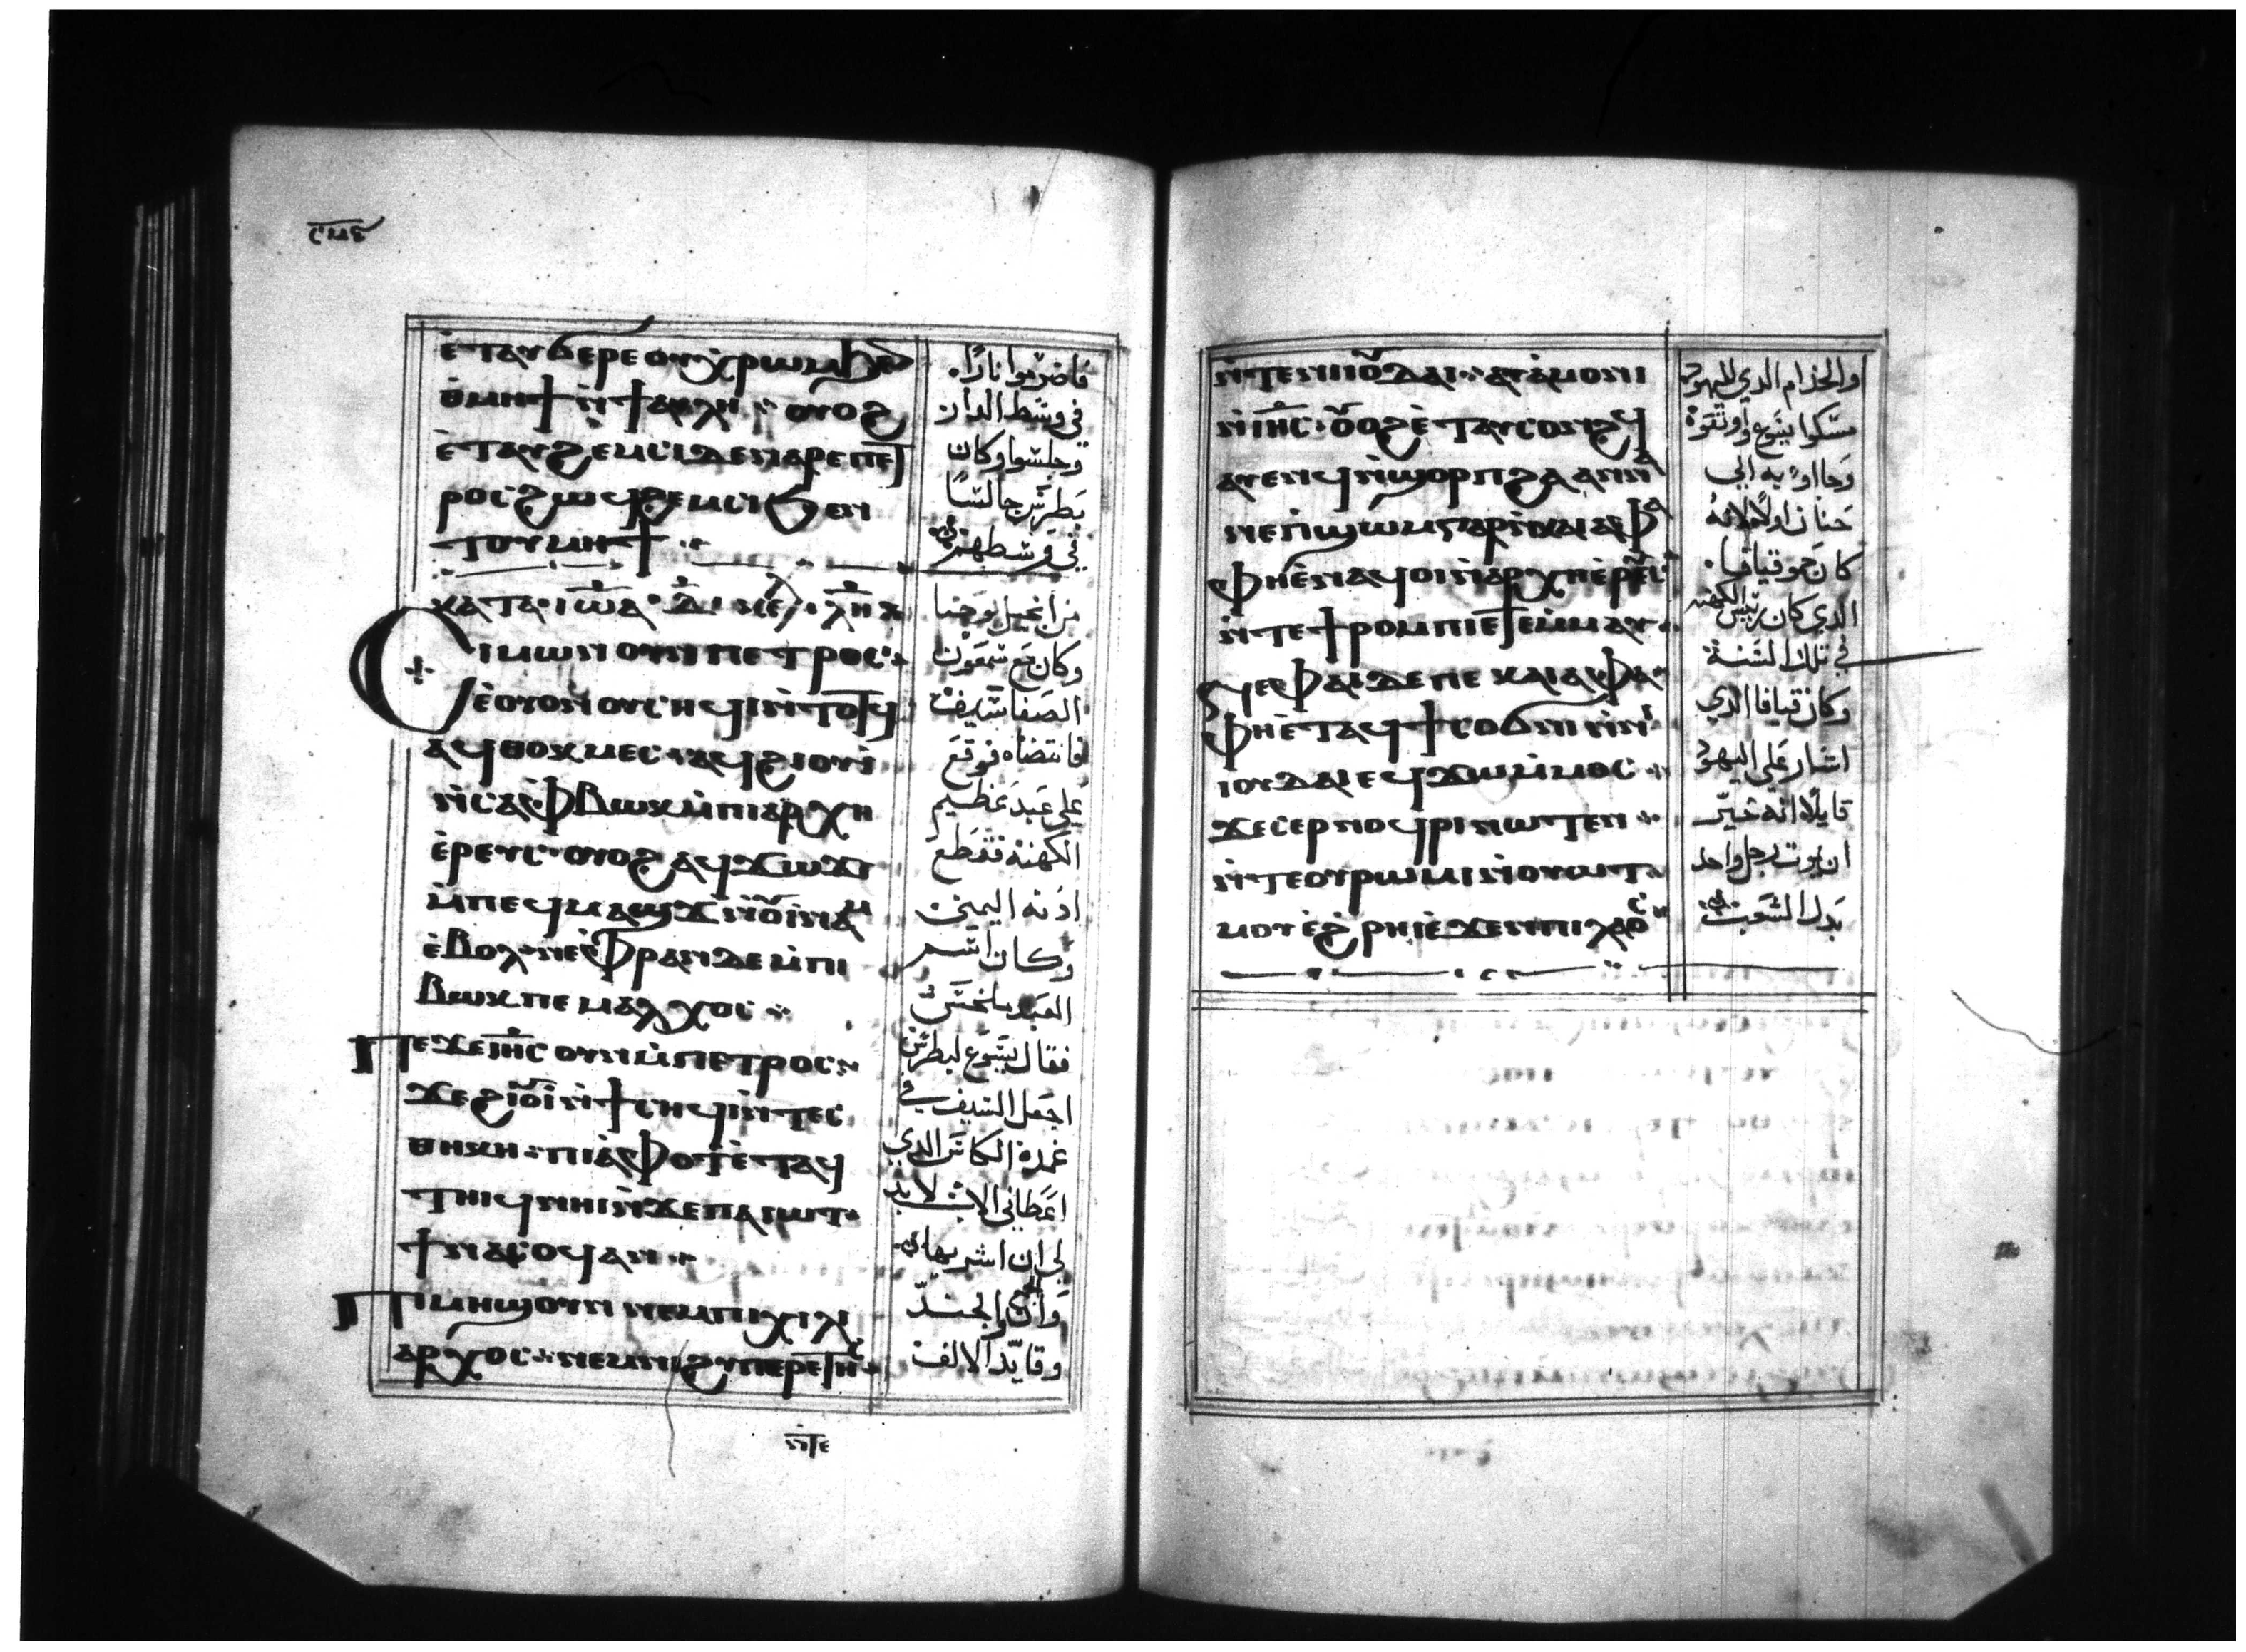 ⲥⲙⲋ
ⲉ̀ⲧⲁⲩϭⲉⲣⲉ ⲟⲩⲭ̀ⲣⲱⲙ ϧⲉⲛ
ⲑ̀ⲙⲏϯ ⲛ̀ϯⲁⲩⲗⲏ ⲟⲩⲟϩ
ⲉ̀ⲧⲁⲩϩⲉⲙⲥⲓ ⲇⲉ ⲛⲁⲣⲉ ⲡⲉⲧ
ⲣⲟⲥ ϩⲱϥ ϩⲉⲙⲥⲓ ϧⲉⲛ
ⲧⲟⲩⲙⲏϯ
ⲕⲁⲧⲁ ⲓⲱⲁ
ⲥⲓⲙⲱⲛ ⲟⲩⲛ ⲡⲉⲧⲣⲟⲥ
ⲉ̀ⲟⲩⲟⲛ ⲟⲩⲥⲏϥⲓ ⲛ̀ⲧⲟⲧϥ
ⲁϥⲑⲟⲕⲙⲉⲥ ⲁϥϩⲓⲟⲩⲓ
ⲛ̀ⲥⲁ ⲫ̀ⲃⲱⲕ ⲙ̀ⲡⲓⲁⲣⲭⲏ
ⲉ̀ⲣⲉⲩⲥ ⲟⲩⲟϩ ⲁϥϫⲱϫⲓ
ⲙ̀ⲡⲉϥⲙⲁϣϫ ⲛ̀ⲟⲩⲓⲛⲁⲙ
ⲉ̀ⲃⲟⲗ ⲛⲉ ⲫ̀ⲣⲁⲛ ⲇⲉ ⲙ̀ⲡⲓ
ⲃⲱⲕ ⲡⲉ ⲙⲁⲗⲭⲟⲥ
ⲡⲉϫⲉ ⲓⲏⲥ ⲟⲩⲛ ⲙ̀ⲡⲉⲧⲣⲟⲥ
ϫⲉ ϩⲓⲟⲩⲓ ⲛ̀ϯⲥⲏϥⲓ ⲛ̀ⲧⲉⲥ
ⲑⲏⲕⲏ ⲡⲓⲁ̀ⲫⲟⲧ ⲉ̀ⲧⲁϥ
ⲧⲏⲓϥ ⲛⲏⲓ ⲛ̀ϫⲉ ⲡⲁⲓⲱⲧ
ϯⲛⲁⲥⲟϥ ⲁⲛ
ⲡⲓⲙⲏϣ ⲟⲩⲛ ⲛⲉⲙ ⲡⲓⲭⲓⲗⲓ
ⲁⲣⲭⲟⲥ ⲛⲉⲙ ⲛⲓϩⲩⲡⲉⲣⲉⲧⲏⲥ
ⲛ̀ⲧⲉ
فاضرموا نارًا
في وسط الدار
وجلسوا وكان
بطرس جالسًا
في وسطهم
من انجيل يوحنا
وكان مع سمعون
الصفا سيف
فانتضاه فوقع
علي عبد عظيم
الكهنة فقطع
اذنه اليمني
وكان اسم
العبد ملخس
فقال يسوع لبطرس
اجعل السيف في
غمده الكاس الدي
اعطاني الاب لابد
لي ان اشربها
الجند
وقايد الالف
ⲛ̀ⲧⲉ ⲛⲓⲓⲟⲩⲇⲁⲓ ⲁⲩⲁ̀ⲙⲟⲛⲓ
ⲛ̀ⲓⲏⲥ ⲟⲩⲟϩ ⲉ̀ⲧⲁⲩⲥⲟⲛϩϥ
ⲁⲩⲉⲛϥ ⲛ̀ϣⲟⲣⲡ ϩⲁ ⲁⲛⲛⲁ
ⲛⲉ ⲡ̀ϣⲱⲙ ⲅⲁⲣ ⲛ̀ⲕⲁⲓⲁⲫⲁ
ⲫⲏ ⲉ̀ⲛⲁϥⲟⲓ ⲛ̀ⲁⲣⲭⲏⲉ̀ⲣⲉⲩⲥ
ⲛ̀ⲧⲉ ϯⲣⲟⲙⲡⲓ ⲉⲧⲉⲙⲙⲁⲩ
ⲛⲉ ⲫⲁⲓ ⲇⲉ ⲡⲉ ⲕⲁⲓⲁⲫⲁ
ⲫⲏ ⲉ̀ⲧⲁϥϯⲥⲟϭⲛⲓ ⲛ̀ⲛⲓ
ⲓⲟⲩⲇⲁⲓ ⲉϥϫⲱⲙ̀ⲙⲟⲥ
ϫⲉ ⲥⲉⲣⲛⲟϥⲣⲓ ⲛⲱⲧⲉⲛ
ⲛ̀ⲧⲉ ⲟⲩⲣⲱⲙⲓ ⲛ̀ⲟⲩⲱⲧ
ⲙⲟⲩ ⲉ̀ϩ̀ⲣⲏⲓ ⲉ̀ϫⲉⲛ ⲡⲓⲗⲁⲟⲥ
والخدام الدي لليهود
مسكوا يسوع واوثقوه
وجاوا به الي
حنان اولا لانه
كان حمو قيافا
الدي كان رييس الكهنه
في تلك السنة
وكان قيافا الدي
اشار علي اليهود
قايلا انه خير
ان يموت رجل واحد
بدل الشعب